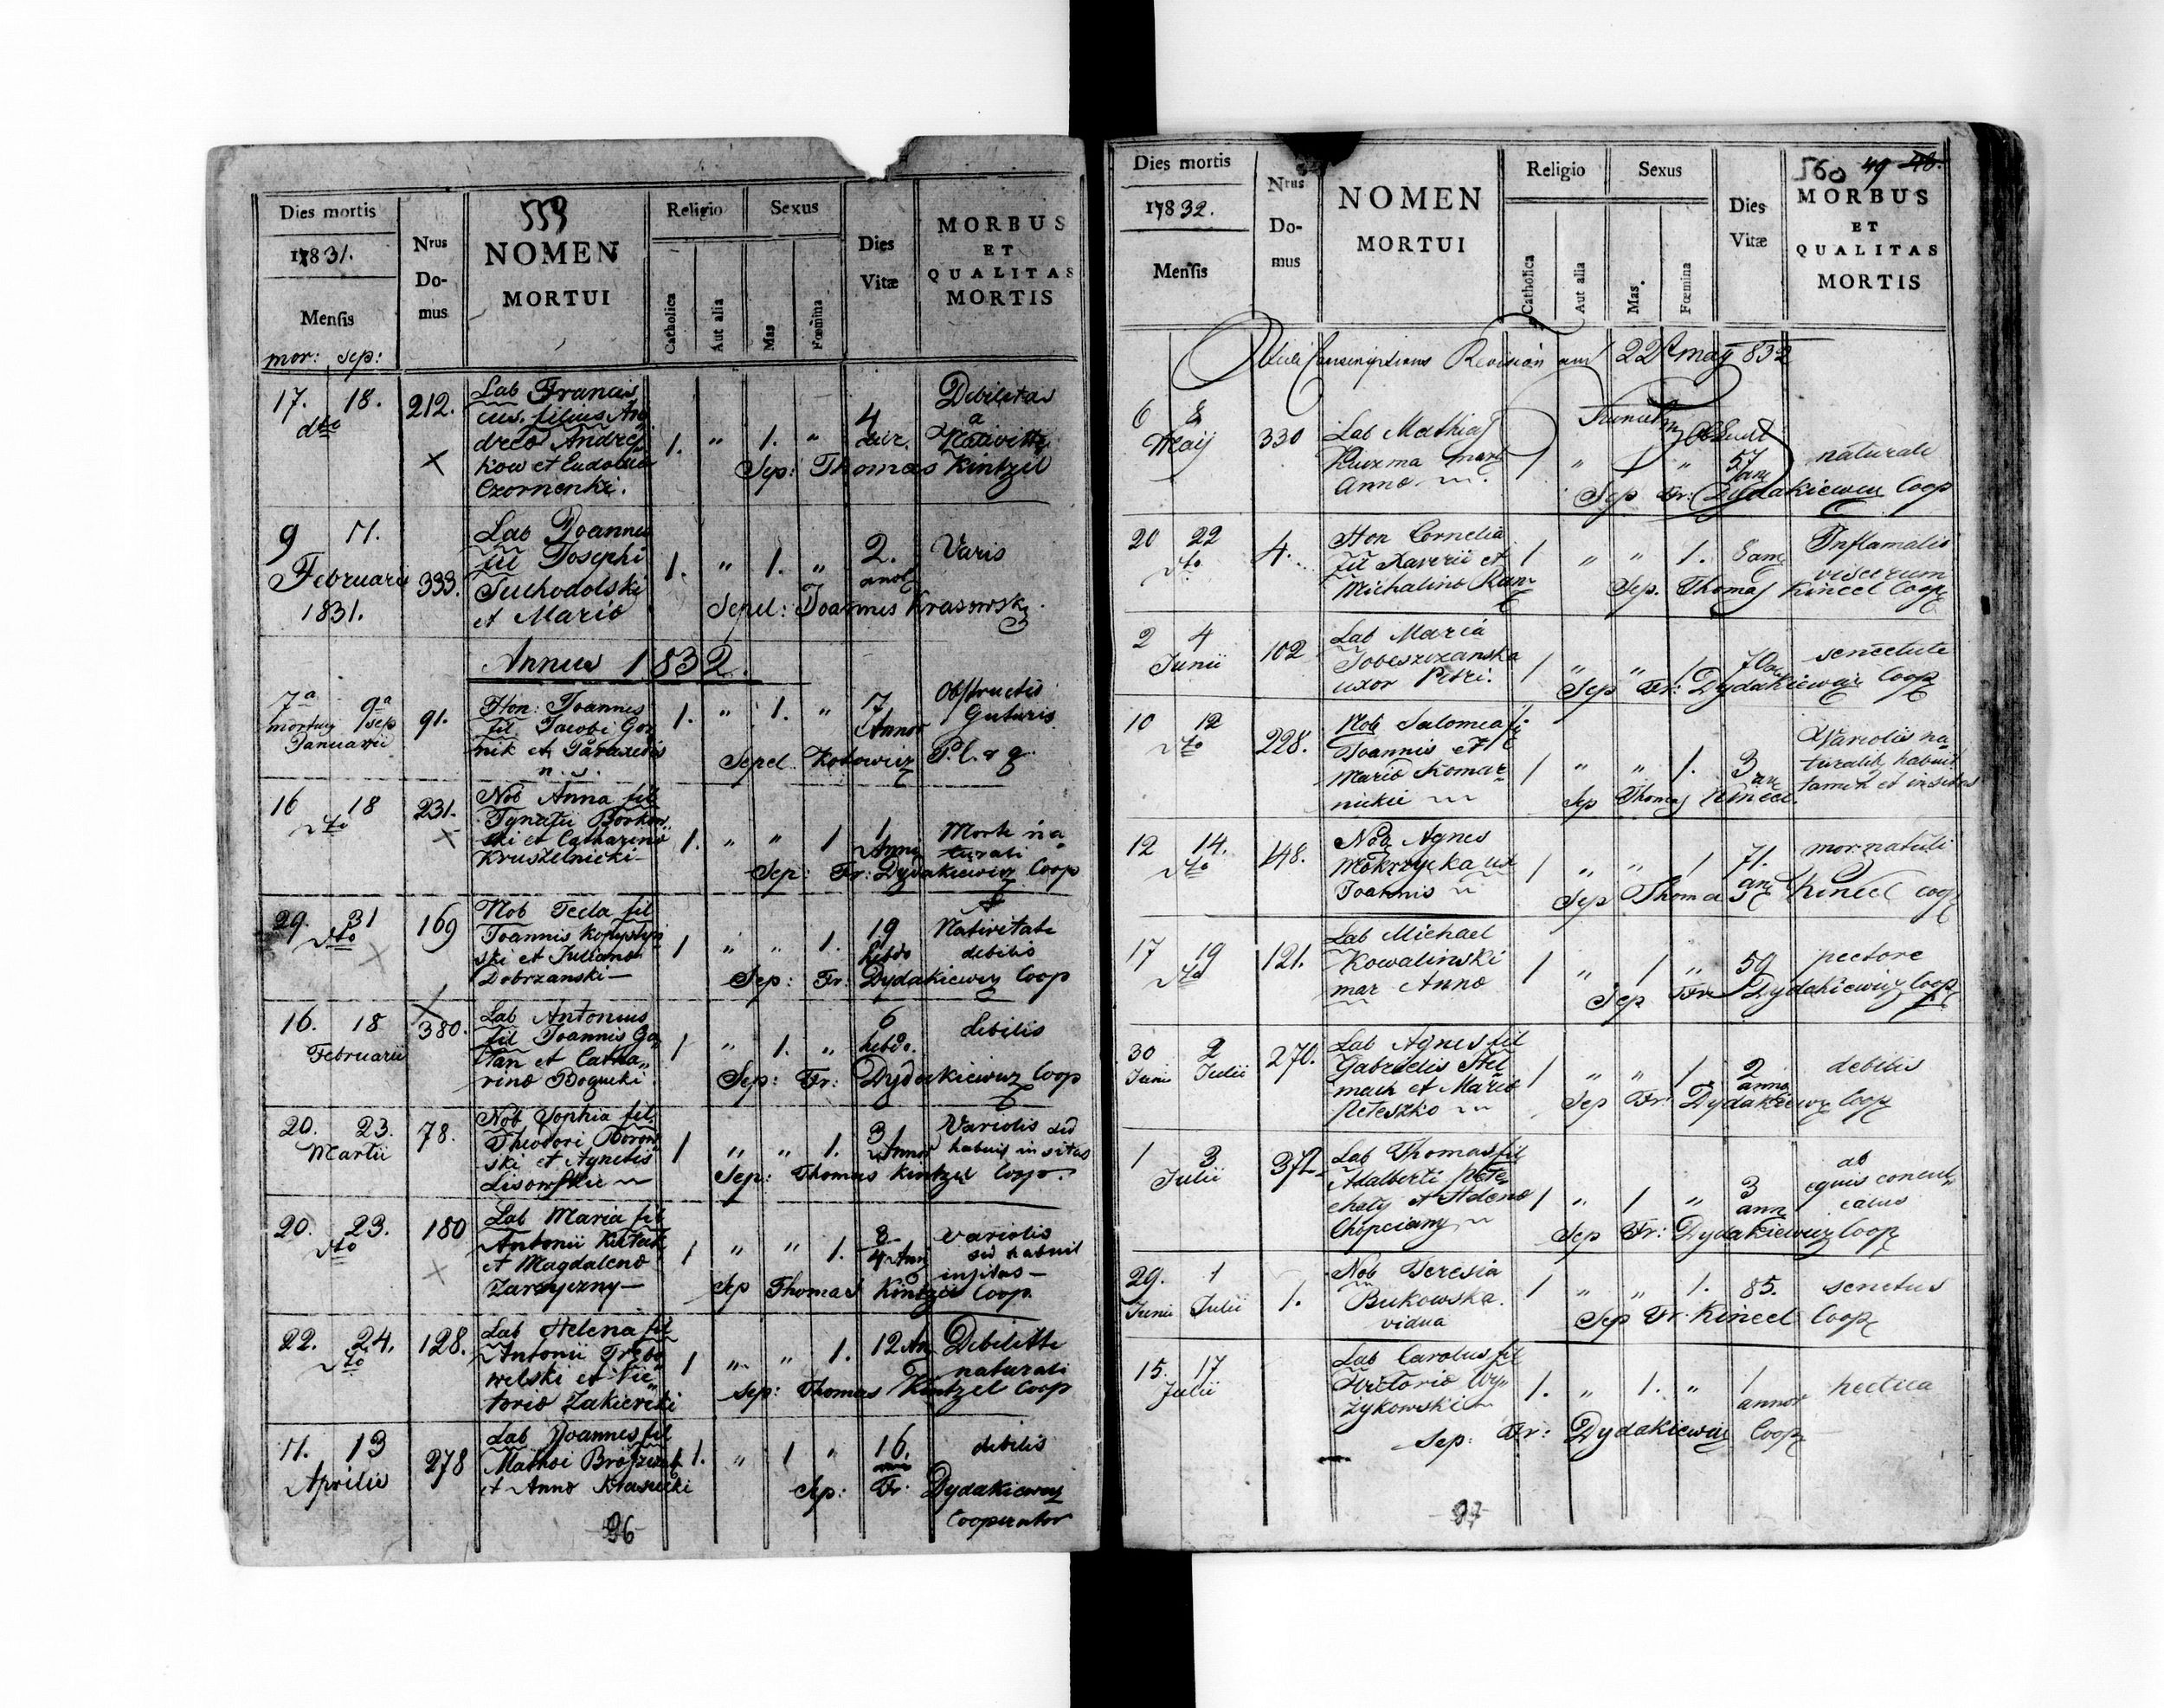 Dies mortis
1831.
Mensis
mor: sep:
Nrus
Do-
mus
559
NOMEN
MORTUI
Religio
Catholica
Aut alia
Sexus
Mas
Fœmina
Dies
Vitæ
MORBUS
ET
QUALITAS
MORTIS
17. 18.
dto
212.
Lab Francis
cus. filius An
dreæ Andrej
kow et Eudoxiæ
Czornenki.
1. " 1. "
4
Debilitas
a
Nativitte
Sep: Thomas Kintzel
9 11.
Februarii
1831.
333.
Lab Joannes
fil Josephi
Suchodolski
et Mariæ
1. " 1. "
2.
anor
Varis
Sepel: Joannes Krasowski
Annus 1832.
7a 9a
mortuus sep
Januarii
91.
Hon: Joannes
fil Jacobi Gor
nik et Paraxedis
n. s.
1. " 1. "
7
Annor
Obstructis
Guturis
Sepel Kodowicz P. l. &
16 18
dto
231.
Nob Anna fil
Ignatii Borkow
ski et Catharinæ
Kruszelnicki
1. " " 1
1
Anni
Morte na
turali
Sep: Fr: Dydakiewicz Coop
29. 31
dto
169
Nob Tecla fil
Joannis Kopystyń
ski et Julianæ
Dobrzanski
1 " " 1.
19
hebdo
A
Nativitate
debilis
Sep: Fr: Dydakiewicz Coop
16. 18
Februarii
380.
Lab Antonius
fil Joannis Ga
lan et Catha
rinæ Bogucki
1 " 1. "
6
hebdo.
debilis
Sep: Fr: Dydakiewicz Coop
20. 23.
Martii
78.
Nob Sophia fil
Theodori Borow
ski et Agnetis
Lisowskie
1 " " 1.
3
Annor
Variolis sed
habuit insitas
Sep: Thomas Kintzel Coop.
20. 23.
dto
180
Lab Maria fil
Antonii
et Magdalenæ
Zarzyczny
1 " " 1.
4 Ann
variolis
sed habuit
insitas
Sep Thomas Kintzel Coop
22. 24.
dto
128.
Lab Helena fil
Antonii Trębo
welski et Vic
toriæ Zakierski
1 " " 1.
12 An
Debilitte
naturali
Sep: Thomas Kintzel Coop
11. 13
Aprilis
278
Lab Joannes fil
Mathæi
et Annæ Krasucki
1. " 1 "
16.
debilis
Sep: Fr: Dydakiewicz
Cooperator
96
Dies mortis
1832.
Mensis
Nrus
Do-
mus
NOMEN
MORTUI
Religio
Catholica
Aut alia
Sexus
Mas.
Fœmina
Dies
Vitæ
560 49 48.
MORBUS
ET
QUALITAS
MORTIS
Vidi Conscriptions Revision am 22t may 832
6 8
Maij
330
Lab Mathias
Kuzma mart
Annæ
1 " 1 "
57
an
naturali
Sep Fr: Dydakiewicz Coop
20 22
dto
4.
Hon Cornelia
fil Xaverii et
Michalinæ
1 " " 1.
8 an
Inflamatis
viscerum
Sep. Thomas Kincel Coop
2 4
Junii
102
Lab Maria
Sobeszczanska
uxor Petri.
1 " " 1
70 an
senectute
Sep Fr: Dydakiewicz Coop
10 12
dto
228.
Nob Salomea fil
Joannis et
Mariæ Komar
nickie
1 " " 1.
3
an
Variolis na
turalib habuit
tamen et insitas
Sep Thomas Kincel.
12 14.
dto
148.
Nob Agnes
Mokrzycka ux
Joannis
1 " " 1
71.
an
mor naturli
Sep Thomas Kincel Coop
17 19
dto
121.
Lab Michael
Kowalinski
mar Annæ
1 " 1 "
59
pectore
Sep Fr Dydakiewicz Coop
30 2
Junii Julii
270.
Lab Agnes fil
Gabrielis Stel
mach et Mariæ
Peteszko
1 " " 1
2
anno
debilis
Sep Fr: Dydakiewicz Coop
1 3
Julii
372.
Lab Thomas fil
Adalberti
et Helenæ
Chopciany
1 " 1 "
3
ann
ab
equis concul
catus
Sep Fr: Dydakiewicz Coop
29. 1
Junii Julii
1.
Nob Teresia
Bukowska.
vidua
1 " " 1.
85.
senectus
Sep Fr. Kincel Coop
15. 17
Julii
Lab Carolus fil
Victoriæ Wy
żykowski
1. " 1. "
1
annor
hectica
Sep: Fr: Dydakiewicz Coop
97